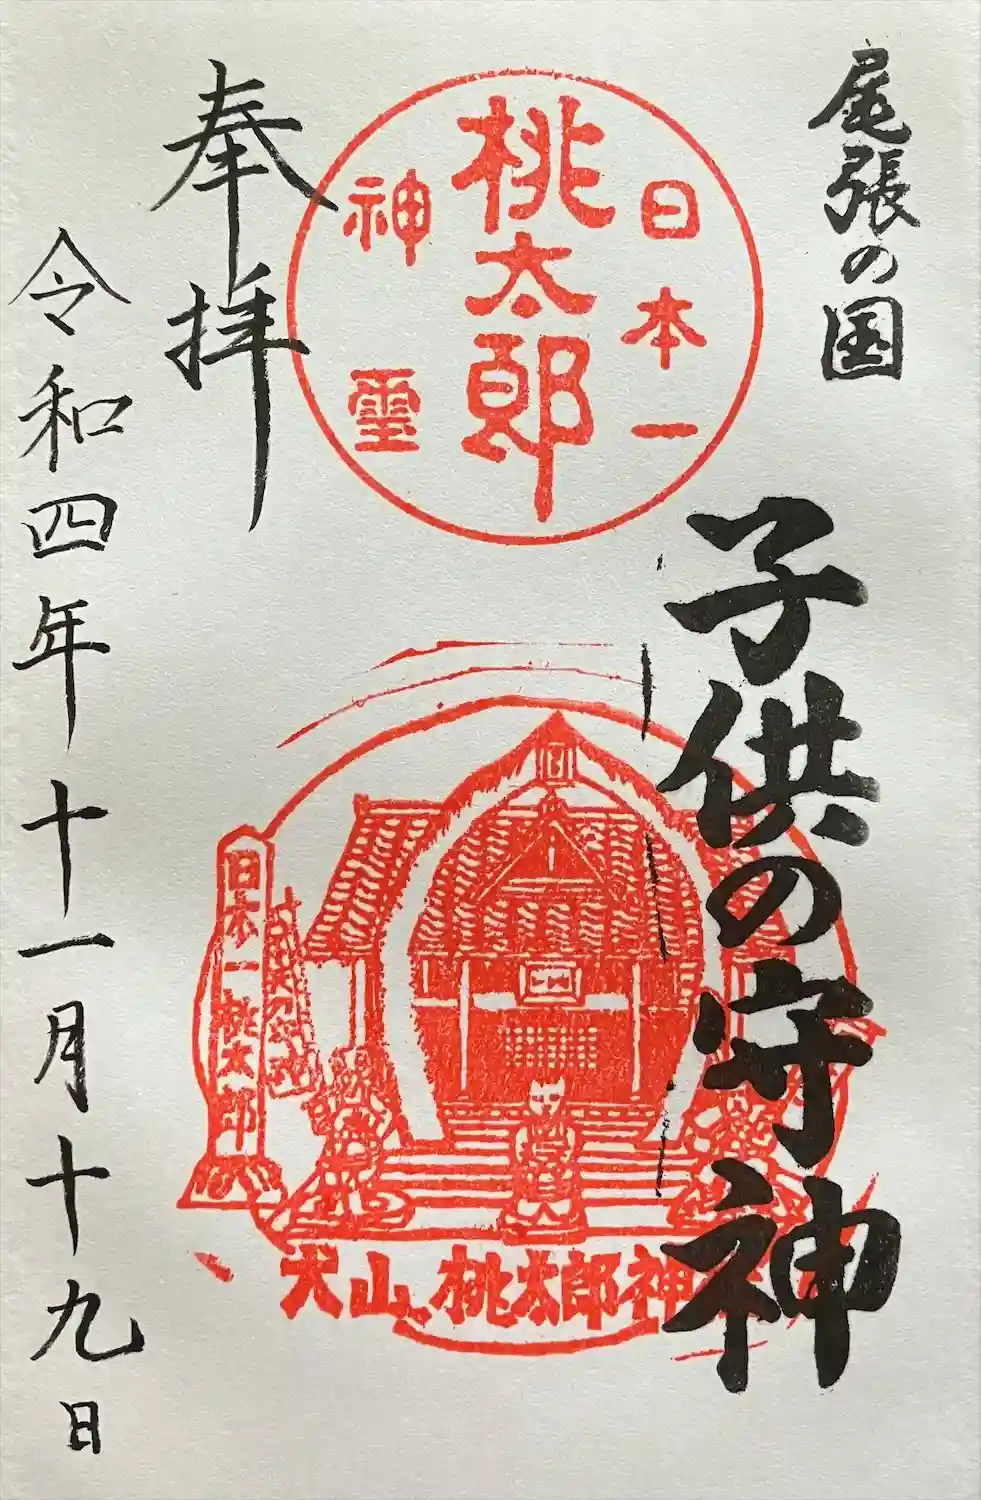 尾張の国
子供の守神
日本一
桃太郎
神霊
日本一桃太郎
犬山 桃太郎神
奉拝
令和四年十一月十九日